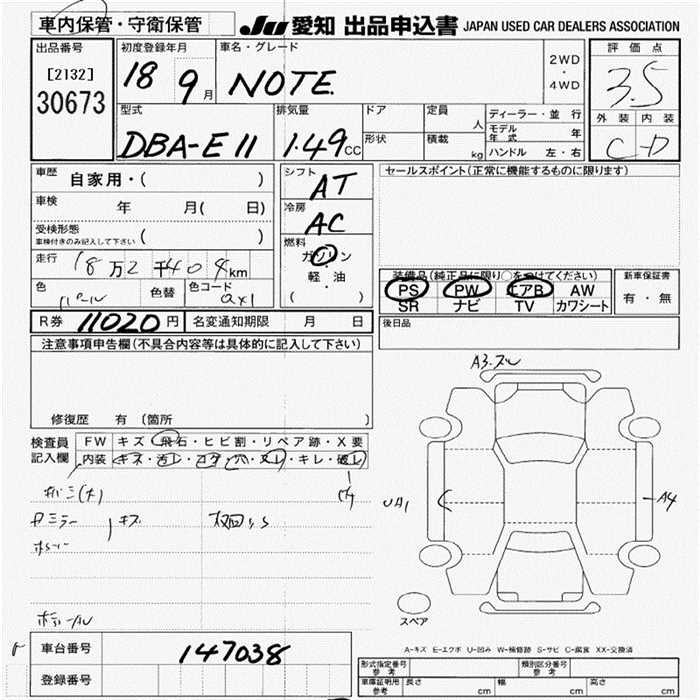 車内保管・守衛保管
JU 愛知 出品申込書 JAPAN USED CAR DEALERS ASSOCIATION
出品番号 初度登録年月 車名・グレード 2WD ・ 4WD 評価点
[2132] 30673 18 9月 NOTE 3.5
型式 排気量 ドア 定員 人 ディーラー・並行 外装 内装
DBA-E11 1.49cc 形状 積載 kg モデル年式 年 C D
ハンドル 左・右
車歴 自家用・( ) シフト AT セールスポイント(正常に機能するものに限ります)
車検 年 月( 日) 冷房 AC
受検形態 車検付きのみ記入して下さい ( ) 燃料 ガソリン
走行 18万2千404km 軽・油
色 パール 色替 色コード QX1 ( )
装備品(純正品に限り○をつけてください) 新車保証書
PS PW エアB AW 有・無
SR ナビ TV カワシート
R券 11020円 名変通知期限 月 日 後日品
注意事項申告欄(不具合内容等は具体的に記入して下さい)
修復歴 有 (箇所 )
検査員記入欄 FW キズ・飛石・ヒビ割・リペア跡・X要
内装 キズ・汚レ・コゲ・穴・ヌレ・キレ・破レ
A3.ズレ
UA1
A4
キズ
スペア
A-キズ E-エクボ U-凹み W-補修跡 S-サビ C-腐食 XX-交換済
車台番号 147038
登録番号
形式指定番号 参考 類別区分番号 参考
車庫証明用 参考 長さ cm 幅 cm 高さ cm